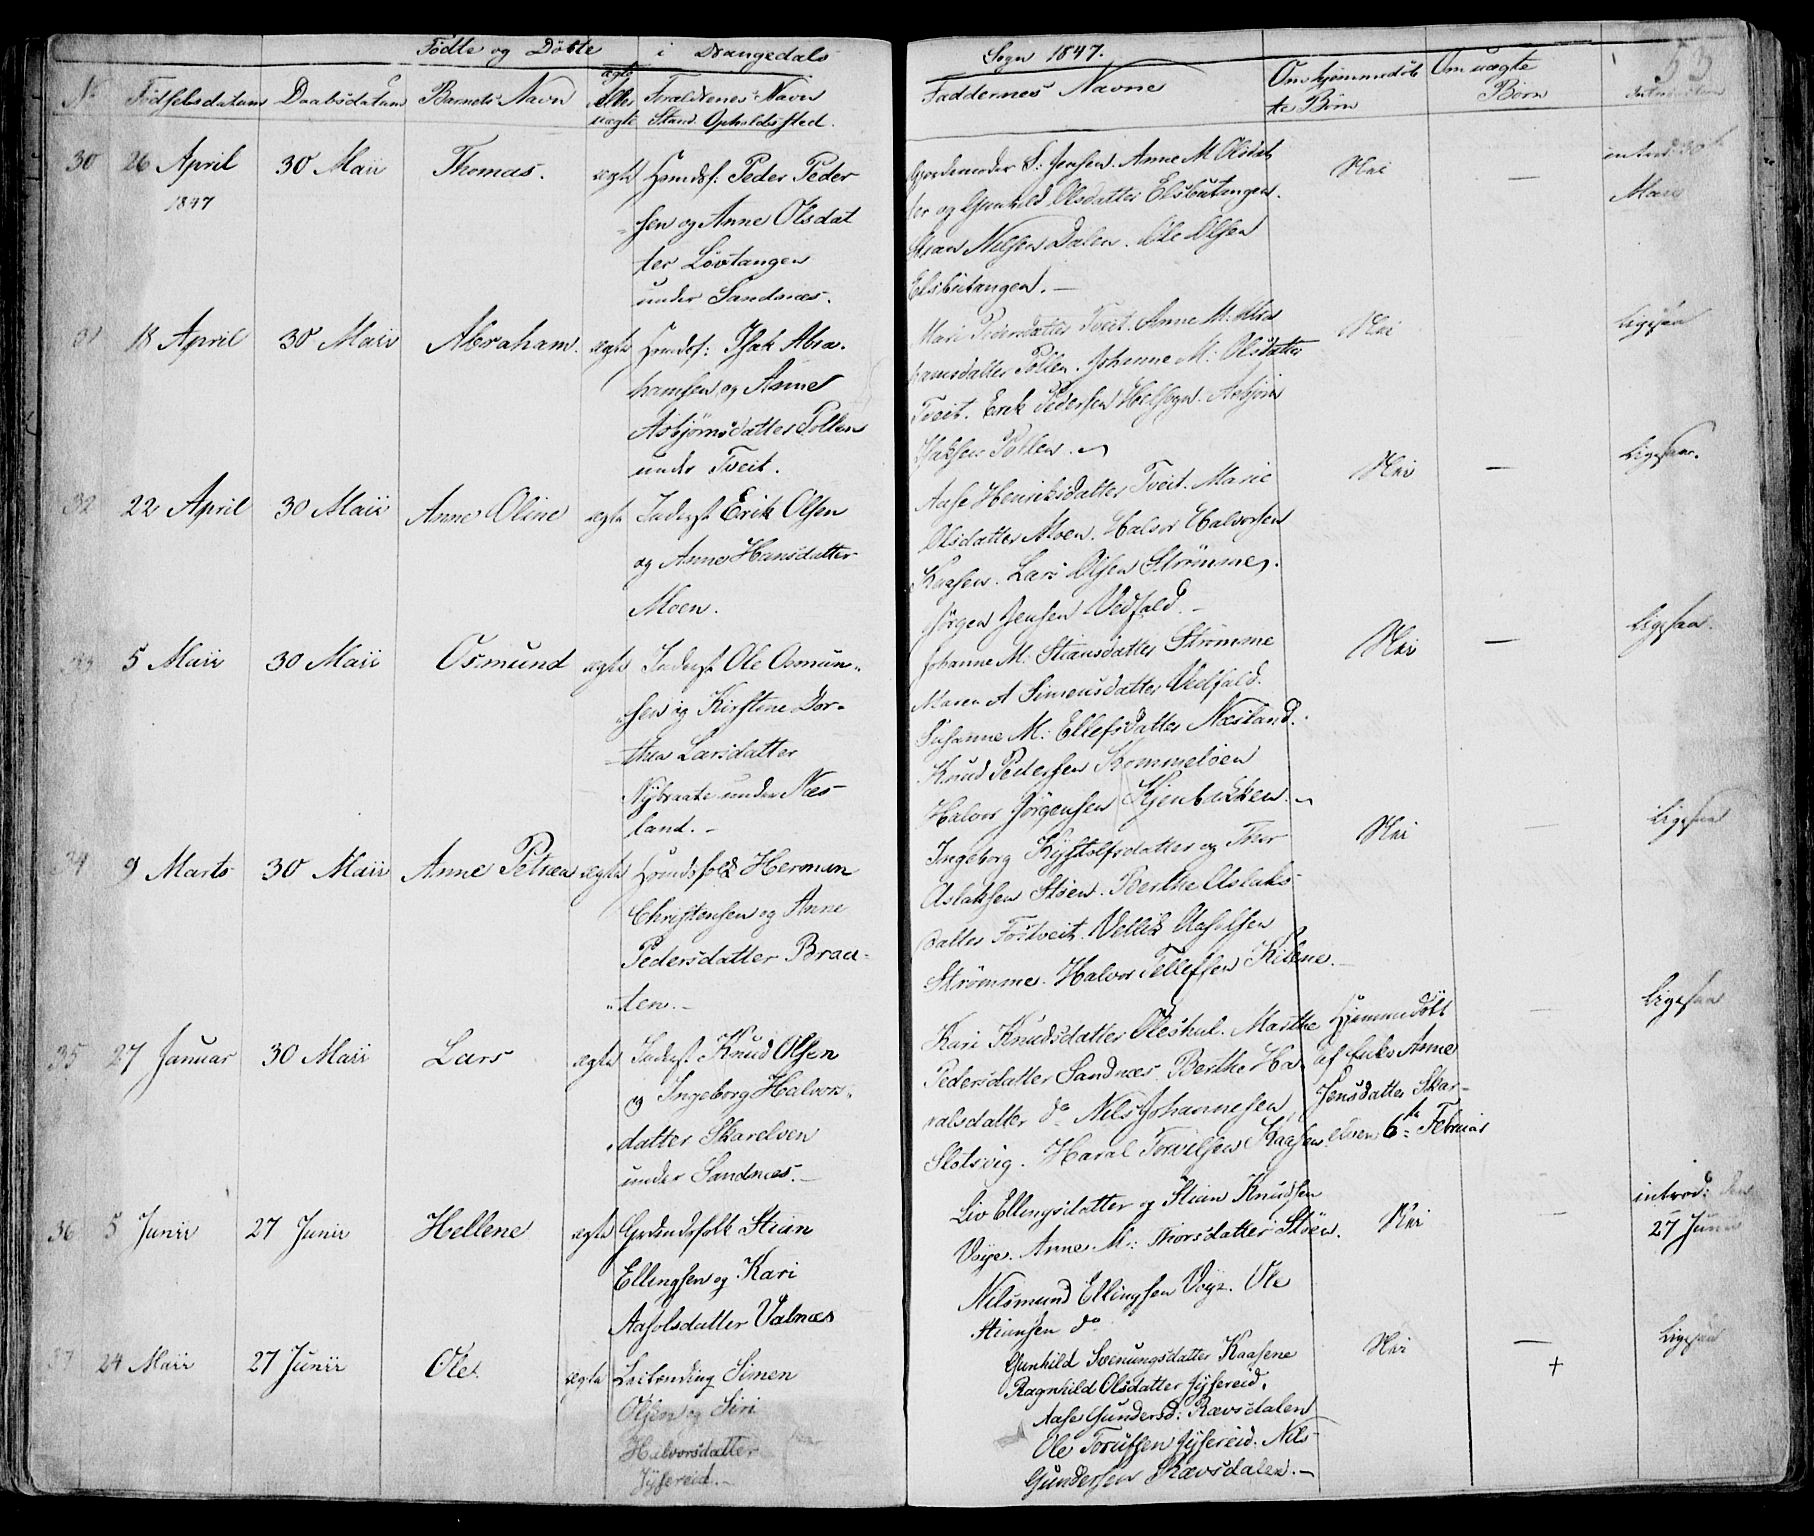 Födte og Döbte i Drangedals Sogn 1847.
53
No Födselsdatum Daabsdatum Barnets Navn ægte eller uægte Forældrenes Navn Stand. Opholdssted.
Faddernes Navne Om hjemmedöbte Börn Om uægte Börn Introduction
30 26 April 1847 30 Maii Thomas. ægte Huusdsf: Peder Peder
sen og Anne Olsdat
ter Lövtangen
under Sandnæs.
S: Jensen. Anne M. Olsdat
ter og Gunhild Olsdatter Elsbutangen.
Stian Nilsen Dalen. Ole Olsen
Elsbutangen.
Nei — introd: 30te
Maii
31 18 April 30 Maii Abraham. ægte Huusdsf: Isak Abra-
hamsen og Anne
Asbjörnsdatter Pollen
under Tveit.
Mari Pedersdatter Tveit. Anne M: Abra
hamsdatter Pollen. Johanne M: Olsdatter
Tveit. Erik Pedersen Helsogn. Asbjörn
Isaksen Pollen.
Nei Ligesaa
32 22 April 30 Maii Anne Oline ægte Inderst Erik Olsen
og Anne Hansdatter
Moen.
Aase Henriksdatter Tveit. Marie
Olsdatter Moen. Halvor Halvorsen
Kaasen. Lars Olsen Strömme.
Jörgen Jensen Vedfald.
Nei — Ligesaa.
33 5 Maii 30 Maii Osmund ægte Inderst Ole Osmun-
sen og Kirstine Dor-
thea Larsdatter
Nybraate under Næs-
land.
Johanne M: Stiansdatter Strömme
Maren A Simensdatter Vedfald.
Susanne M: Ellefsdatter Næsland.
Knud Pedersen Kommelöen
Halvor Jörgensen Kjenbakken.
Nei — Ligesaa.
34 9 Marts 30 Maii Anne Petrea ægte Huusdsfolk Herman
Christensen og Anne
Pedersdatter Braa-
ten.
Ingeborg datter og Thor
Aslaksen Stöen. Berthe Aslaks-
datter Föstveit. Aasolsen
Strömme. Halvor Tellefsen Kilene.
Nei — Ligesaa
35 27 Januar 30 Maii Lars ægte Inderst Knud Olsen
og Ingeborg Halvors-
datter Skarelven
under Sandnæs.
Kari Knudsdatter Öleshul. Marthe
Pedersdatter Sandnæs. Berthe Ha-
ralsdatter do Nils Johannesen
Slotsvig. Haral Torvilsen Kaasen.
Hjemmedöbt
af Enke Anne
Jensdatter Skar-
elven 6te Februar
— Ligesaa
36 5 Junii 27 Junii Hellene ægte Grdmdsfolk Stian
Ellingsen og Kari
Aasolsdatter Valnæs
Liv Ellingsdatter og Stian Knudsen
Voje. Anne M: Thorsdatter Stöen.
Nilsmund Ellingsen Voje. Ole
Stiansen do
Nei — introd: den
27 Junii
37 24 Maii 27 Junii Ole. ægte Leilænding Simen
Olsen og Siri
Halvorsdatter
Jÿsereid.
Gunhild Svenungsdatter Kaasene
Ragnhild Olsdatter Jÿsereid.
Aase Gundersd: Rævsdalen
Ole Torufsen Jÿsereid. Nils
Gundersen Rævsdalen.
Nei — + Ligesaa